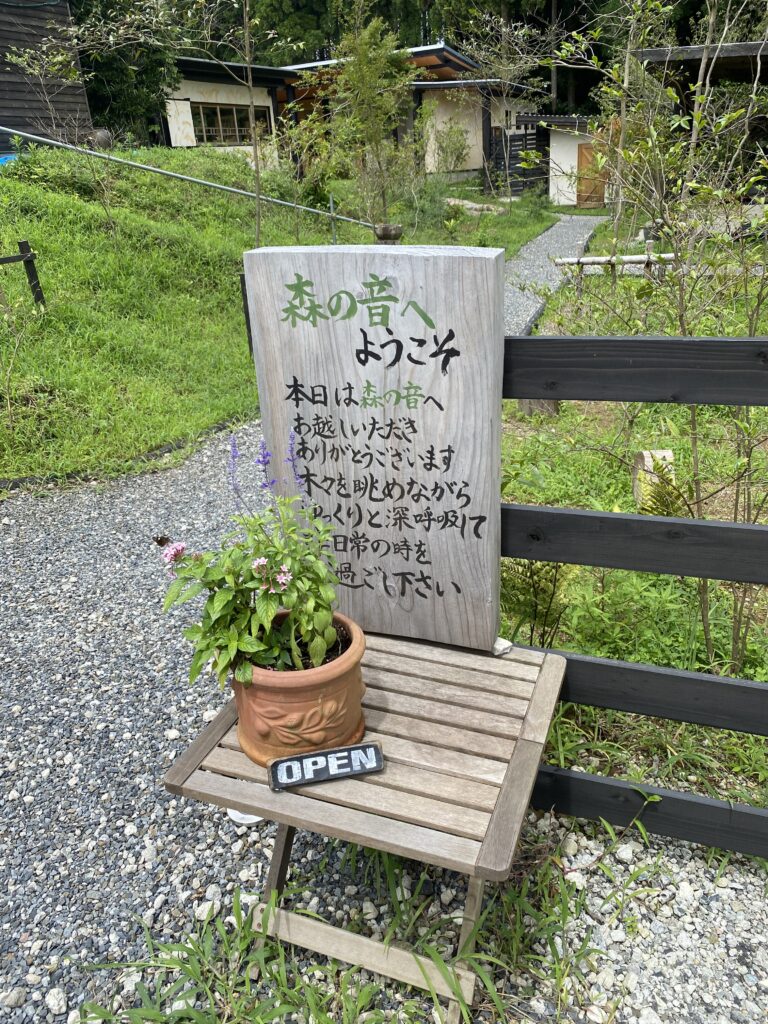 森の音へ
ようこそ
本日は森の音へ
お越しいただき
ありがとうございます
木々を眺めながら
ゆっくりと深呼吸して
日常の時を
過ごし下さい
OPEN